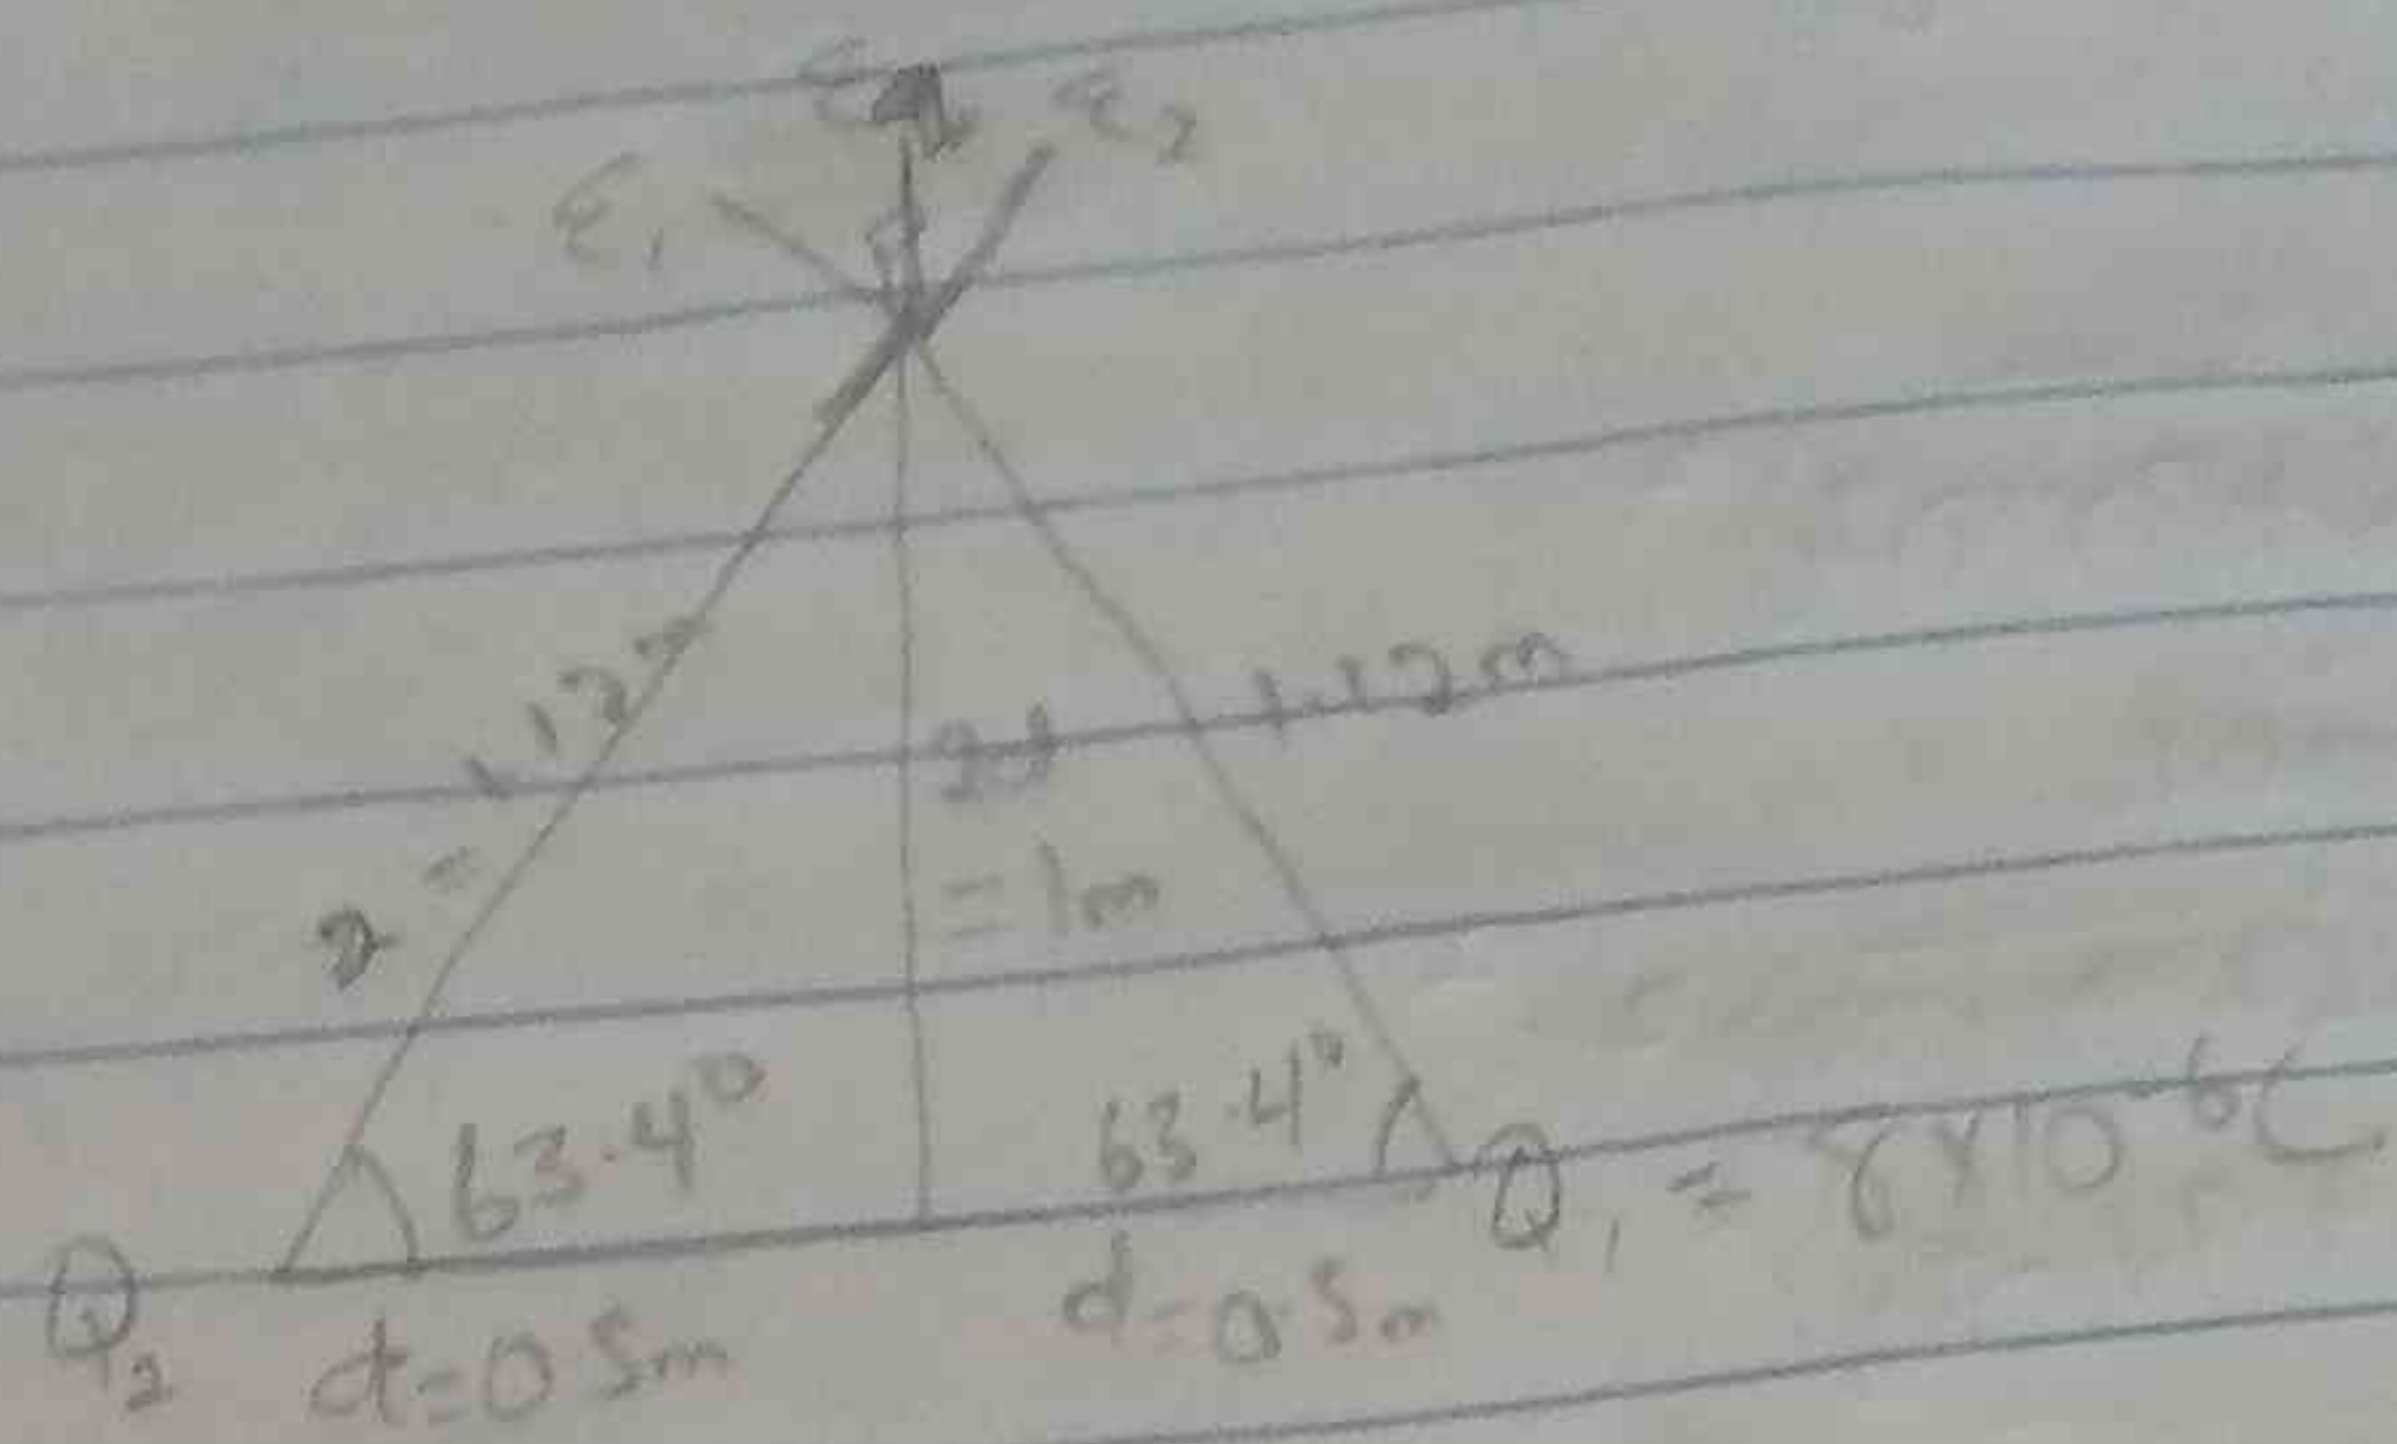 E₂
E₁
1.12m
2d
= 1m
63.4°
63.4°
Q₁ = 8×10⁻⁶C.
Q₂
d=0.5m
d=0.5m